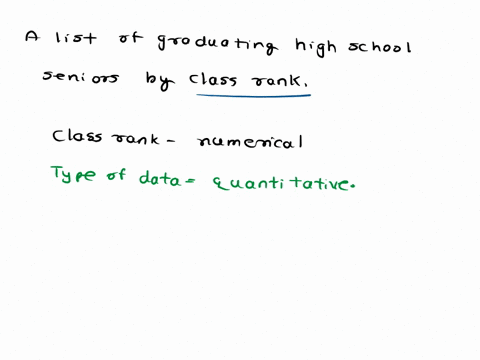 A list of graduating high school
seniors by class rank.
Class rank - numerical
Type of data = quantitative.